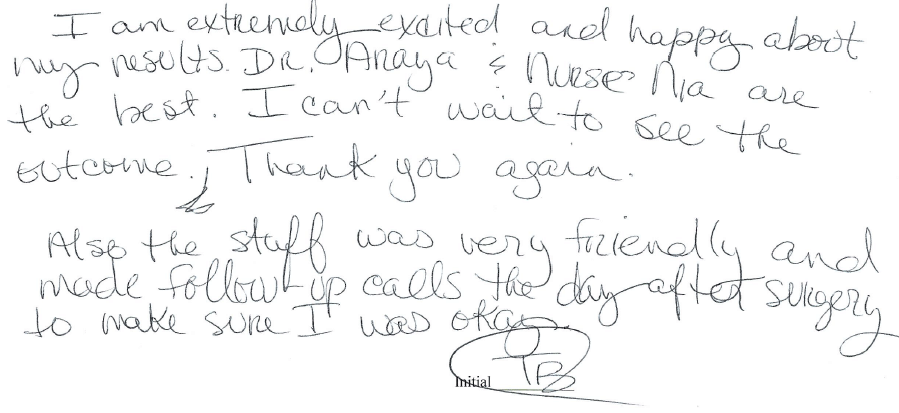 I am extremely excited and happy about
my results. DR. Anaya & Nurse Nia are
the best. I can't wait to see the
outcome. Thank you again.
Also the staff was very friendly and
made follow-up calls the day after surgery
to make sure I was okay.
Initial TB